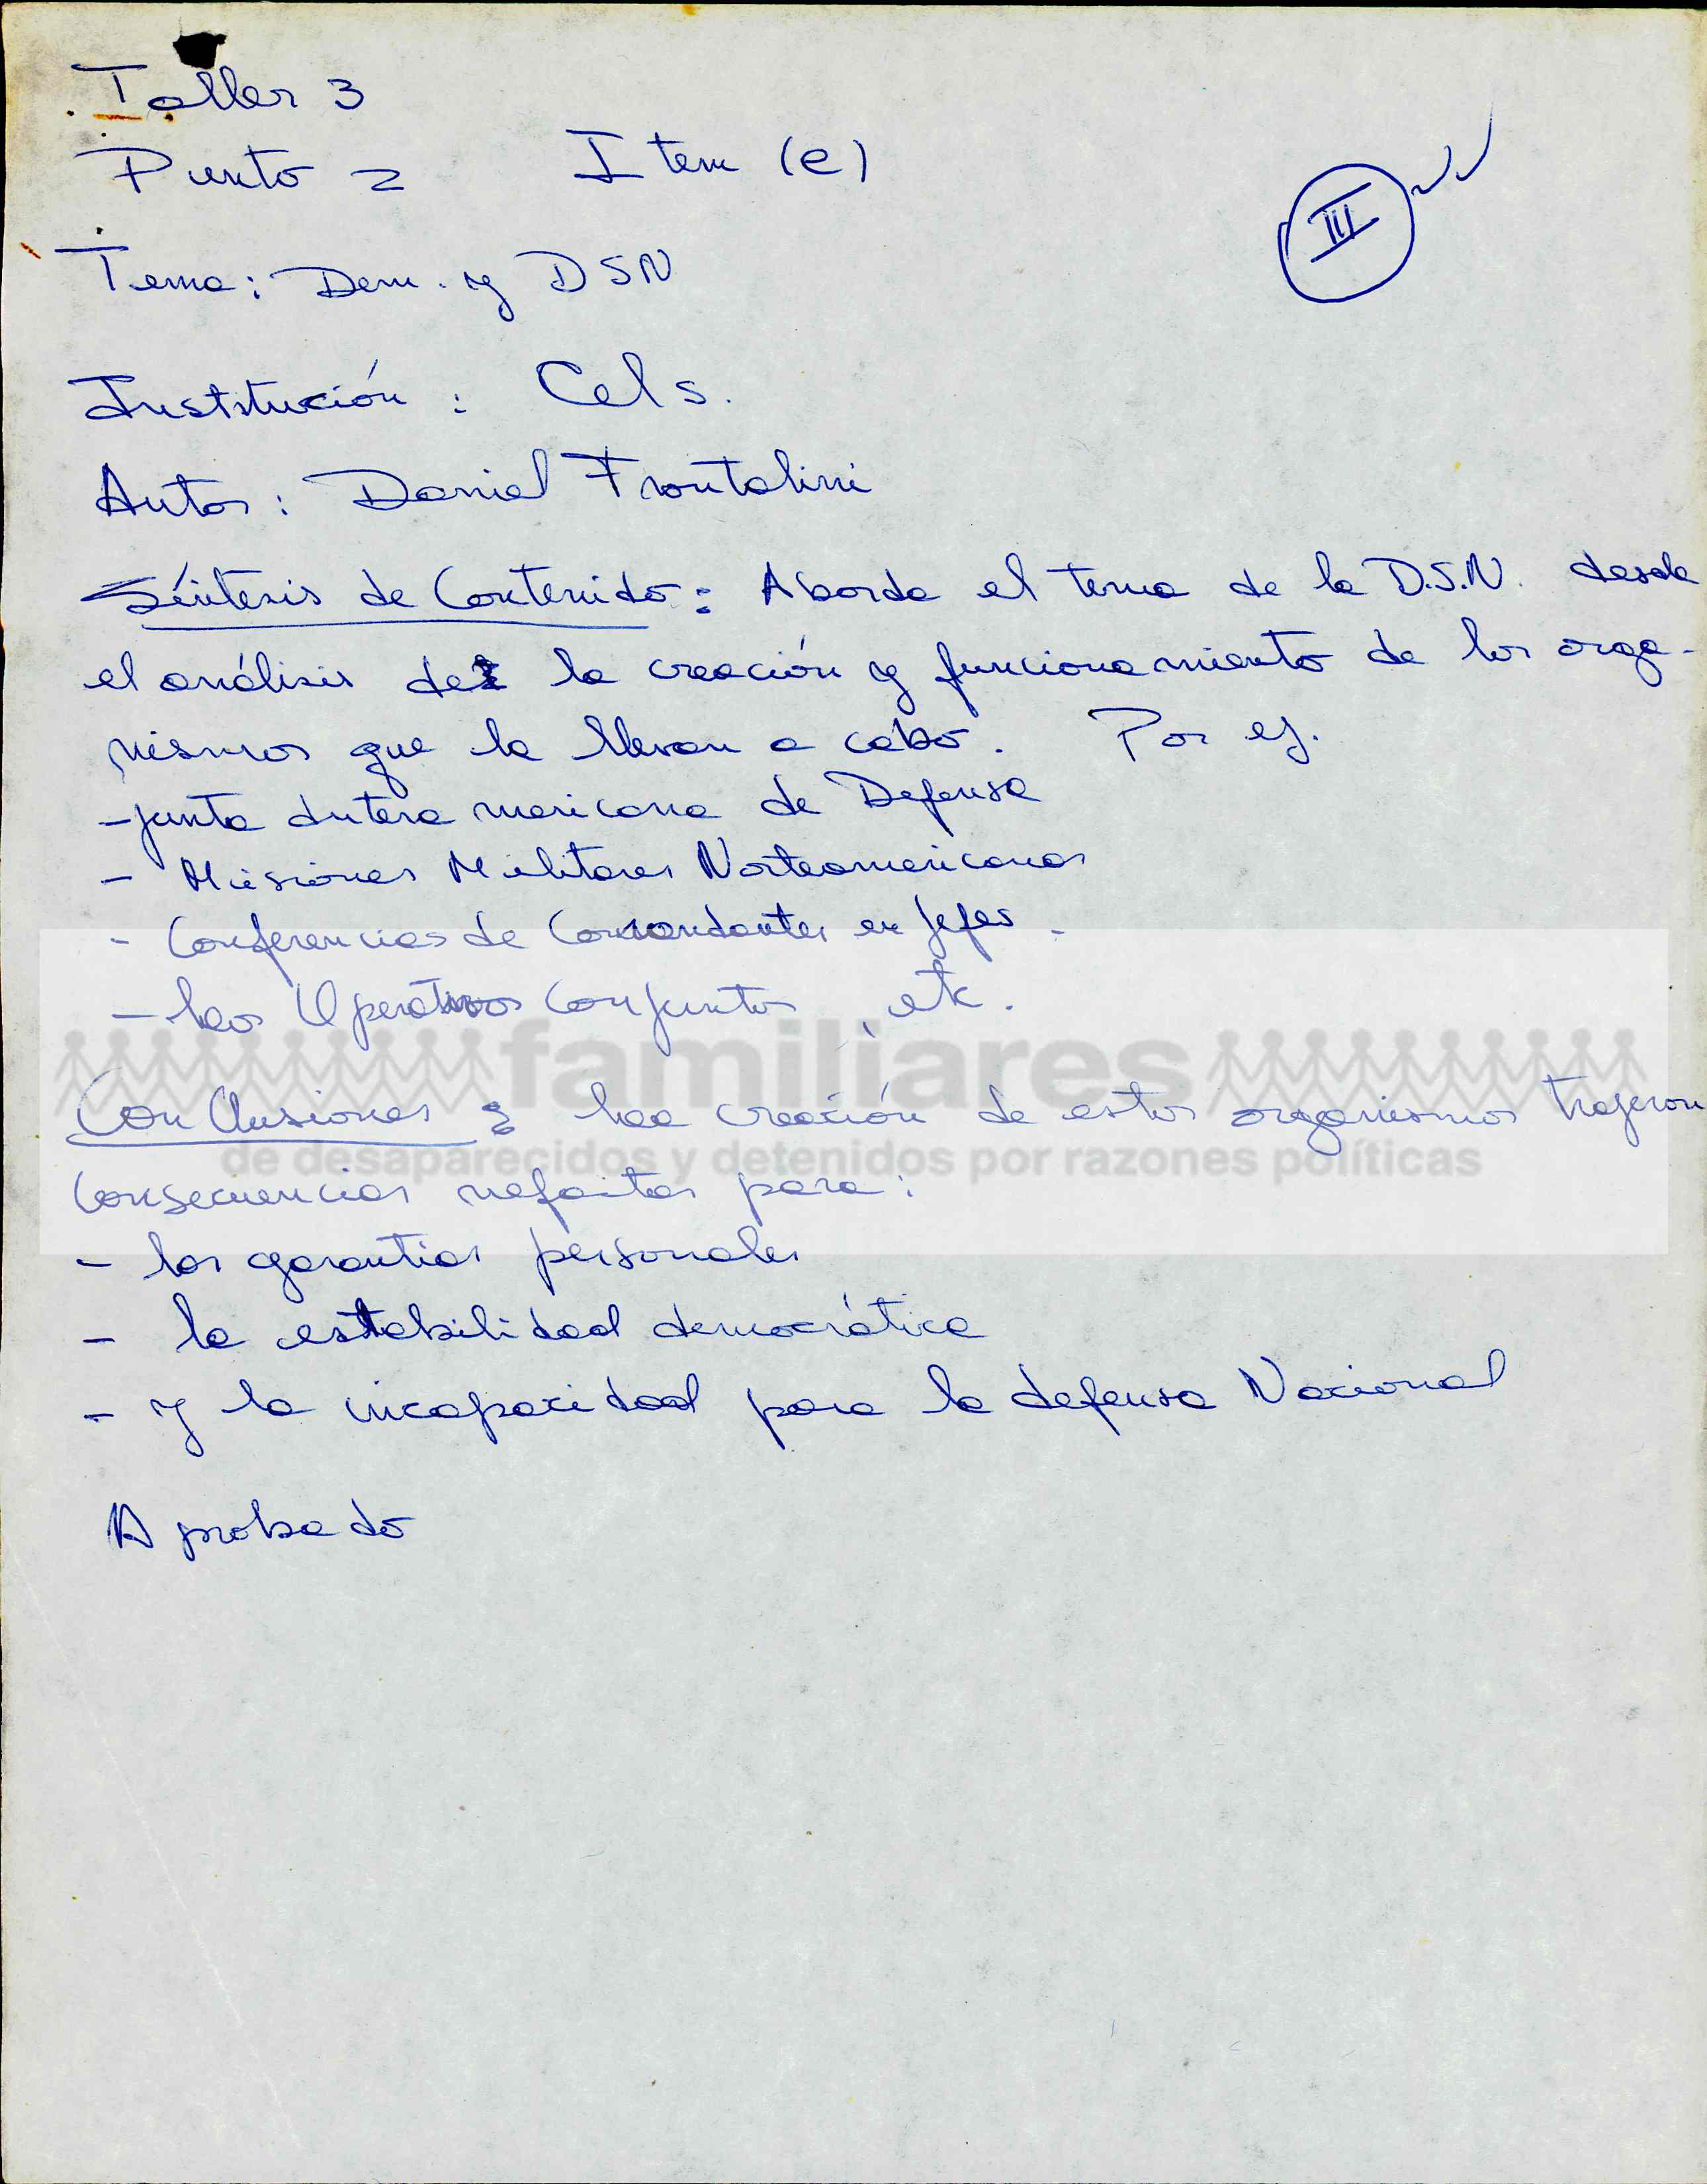 Taller 3
Punto 2 Item (e)
III
Tema: Dem. y DSN
Institución: Cels.
Autor: Daniel Frontalini
Síntesis de Contenido: Aborda el tema de la D.S.N. desde
el análisis de la creación y funcionamiento de los orga-
nismos que la llevan a cabo. Por ej.
- Junta Interamericana de Defensa
- Misiones Militares Norteamericanas
- Conferencias de Comandantes en Jefes.
- Los Operativos Conjuntos, etc.
familiares
Conclusiones: La creación de estos organismos trajeron
de desaparecidos y detenidos por razones políticas
Consecuencias nefastas para:
- las garantías personales
- la estabilidad democrática
- y la incapacidad para la defensa Nacional
Aprobado